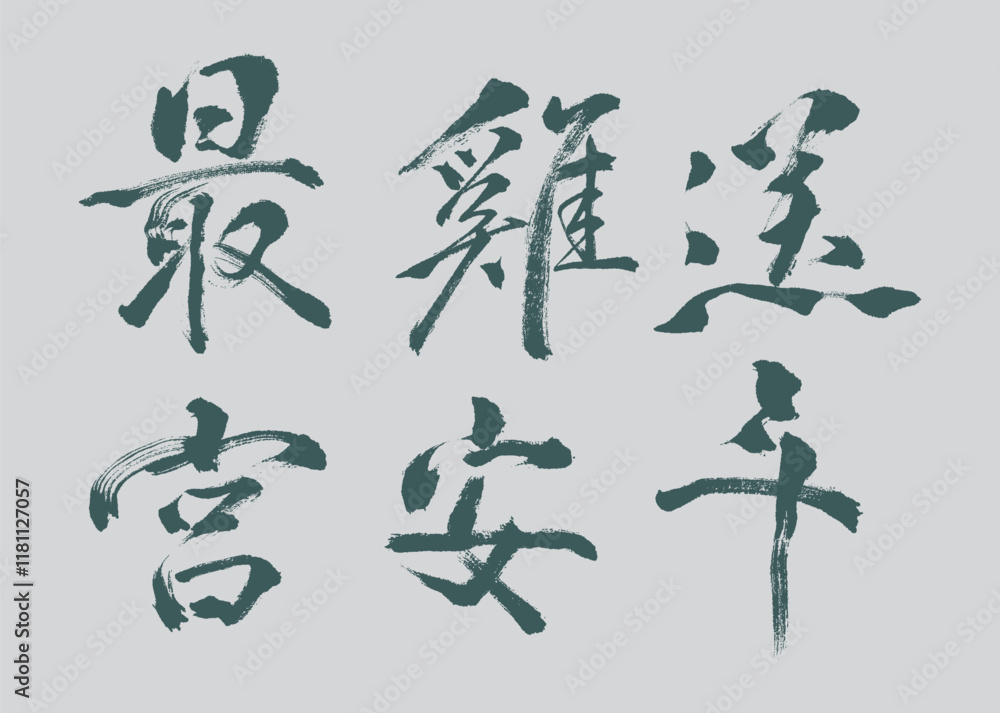 最 雞
宮 安
Adobe Stock | #1181127057